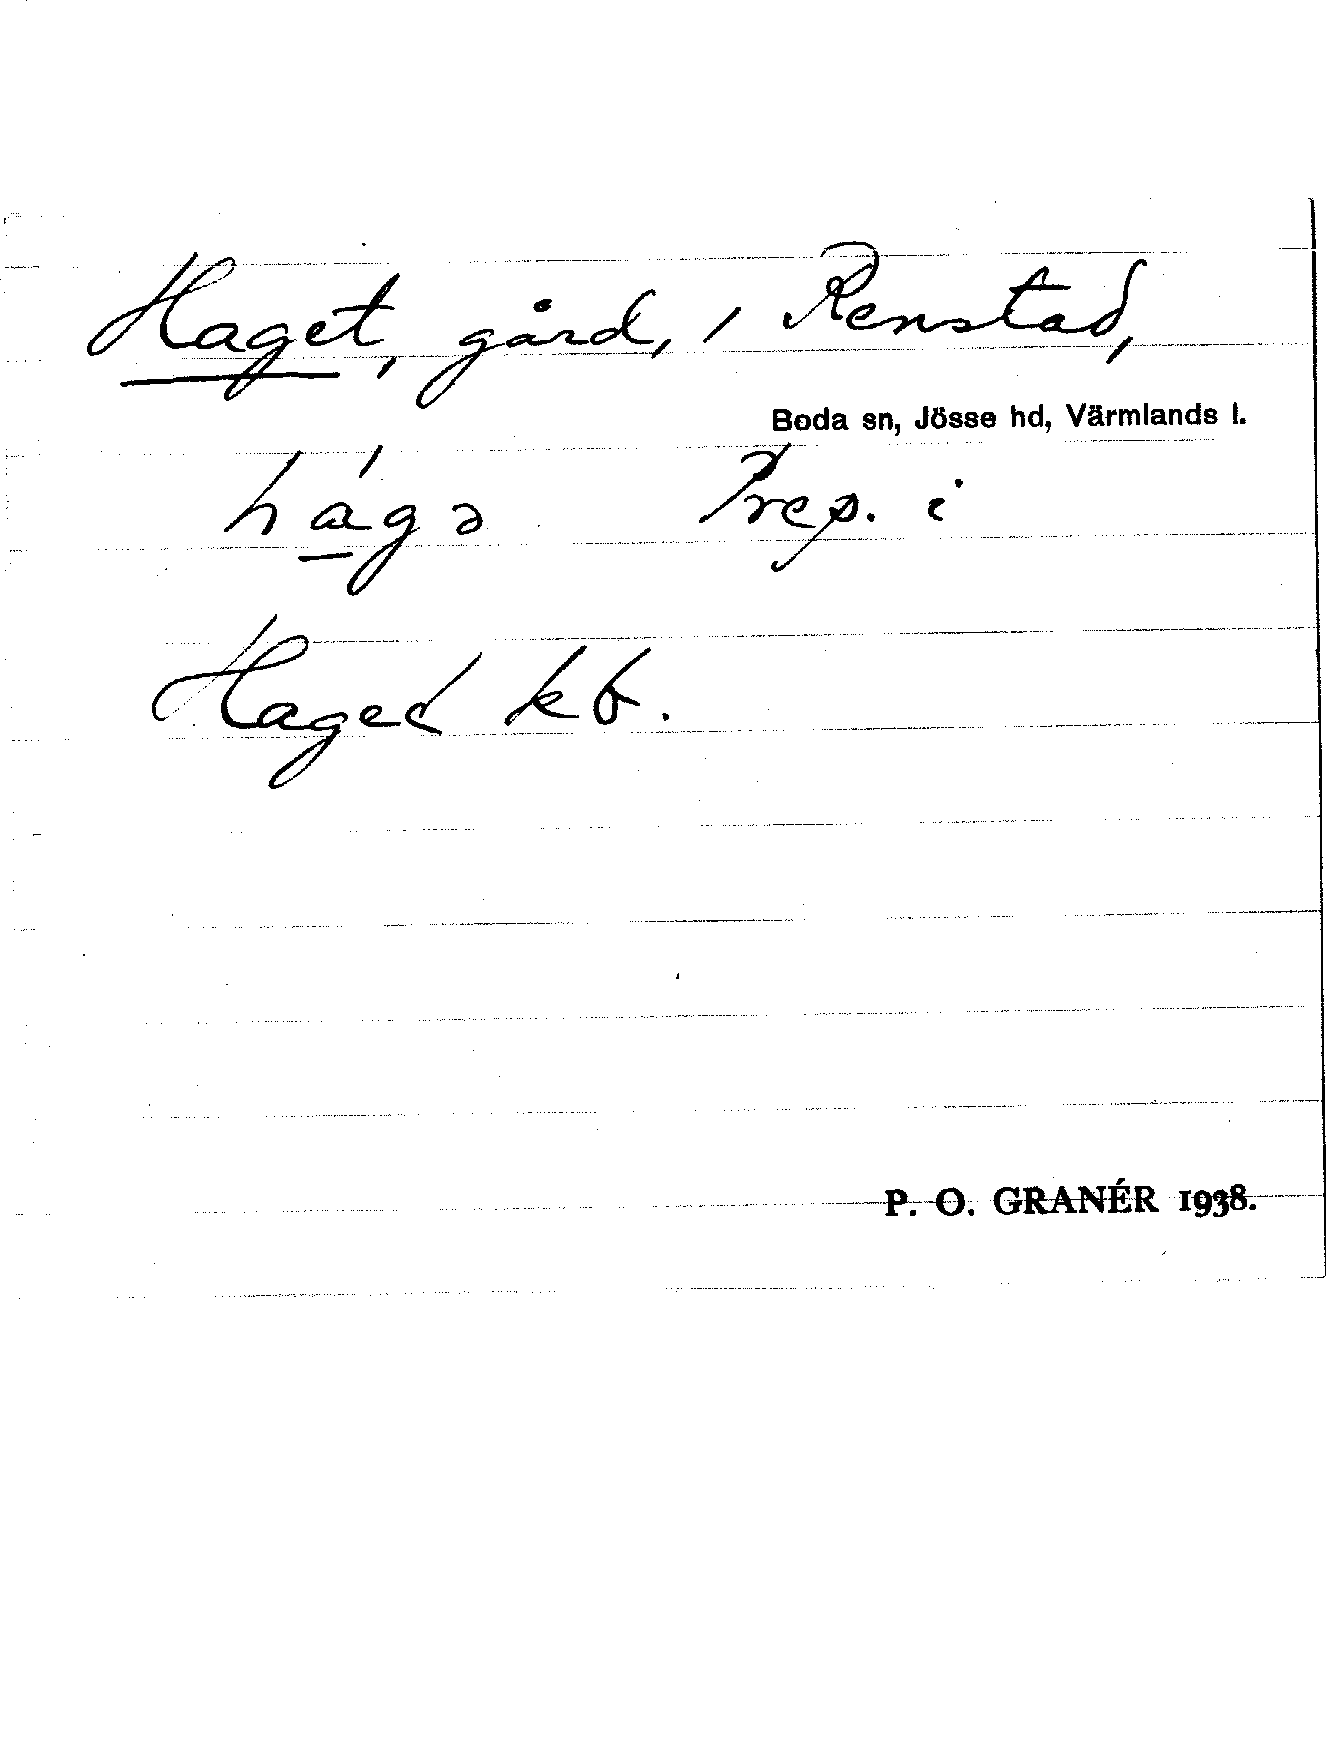 Haget, gård, i Renstad,
Boda sn, Jösse hd, Värmlands l.
há̲gə Prep. i
Haged kb.
P. O. GRANÉR 1938.